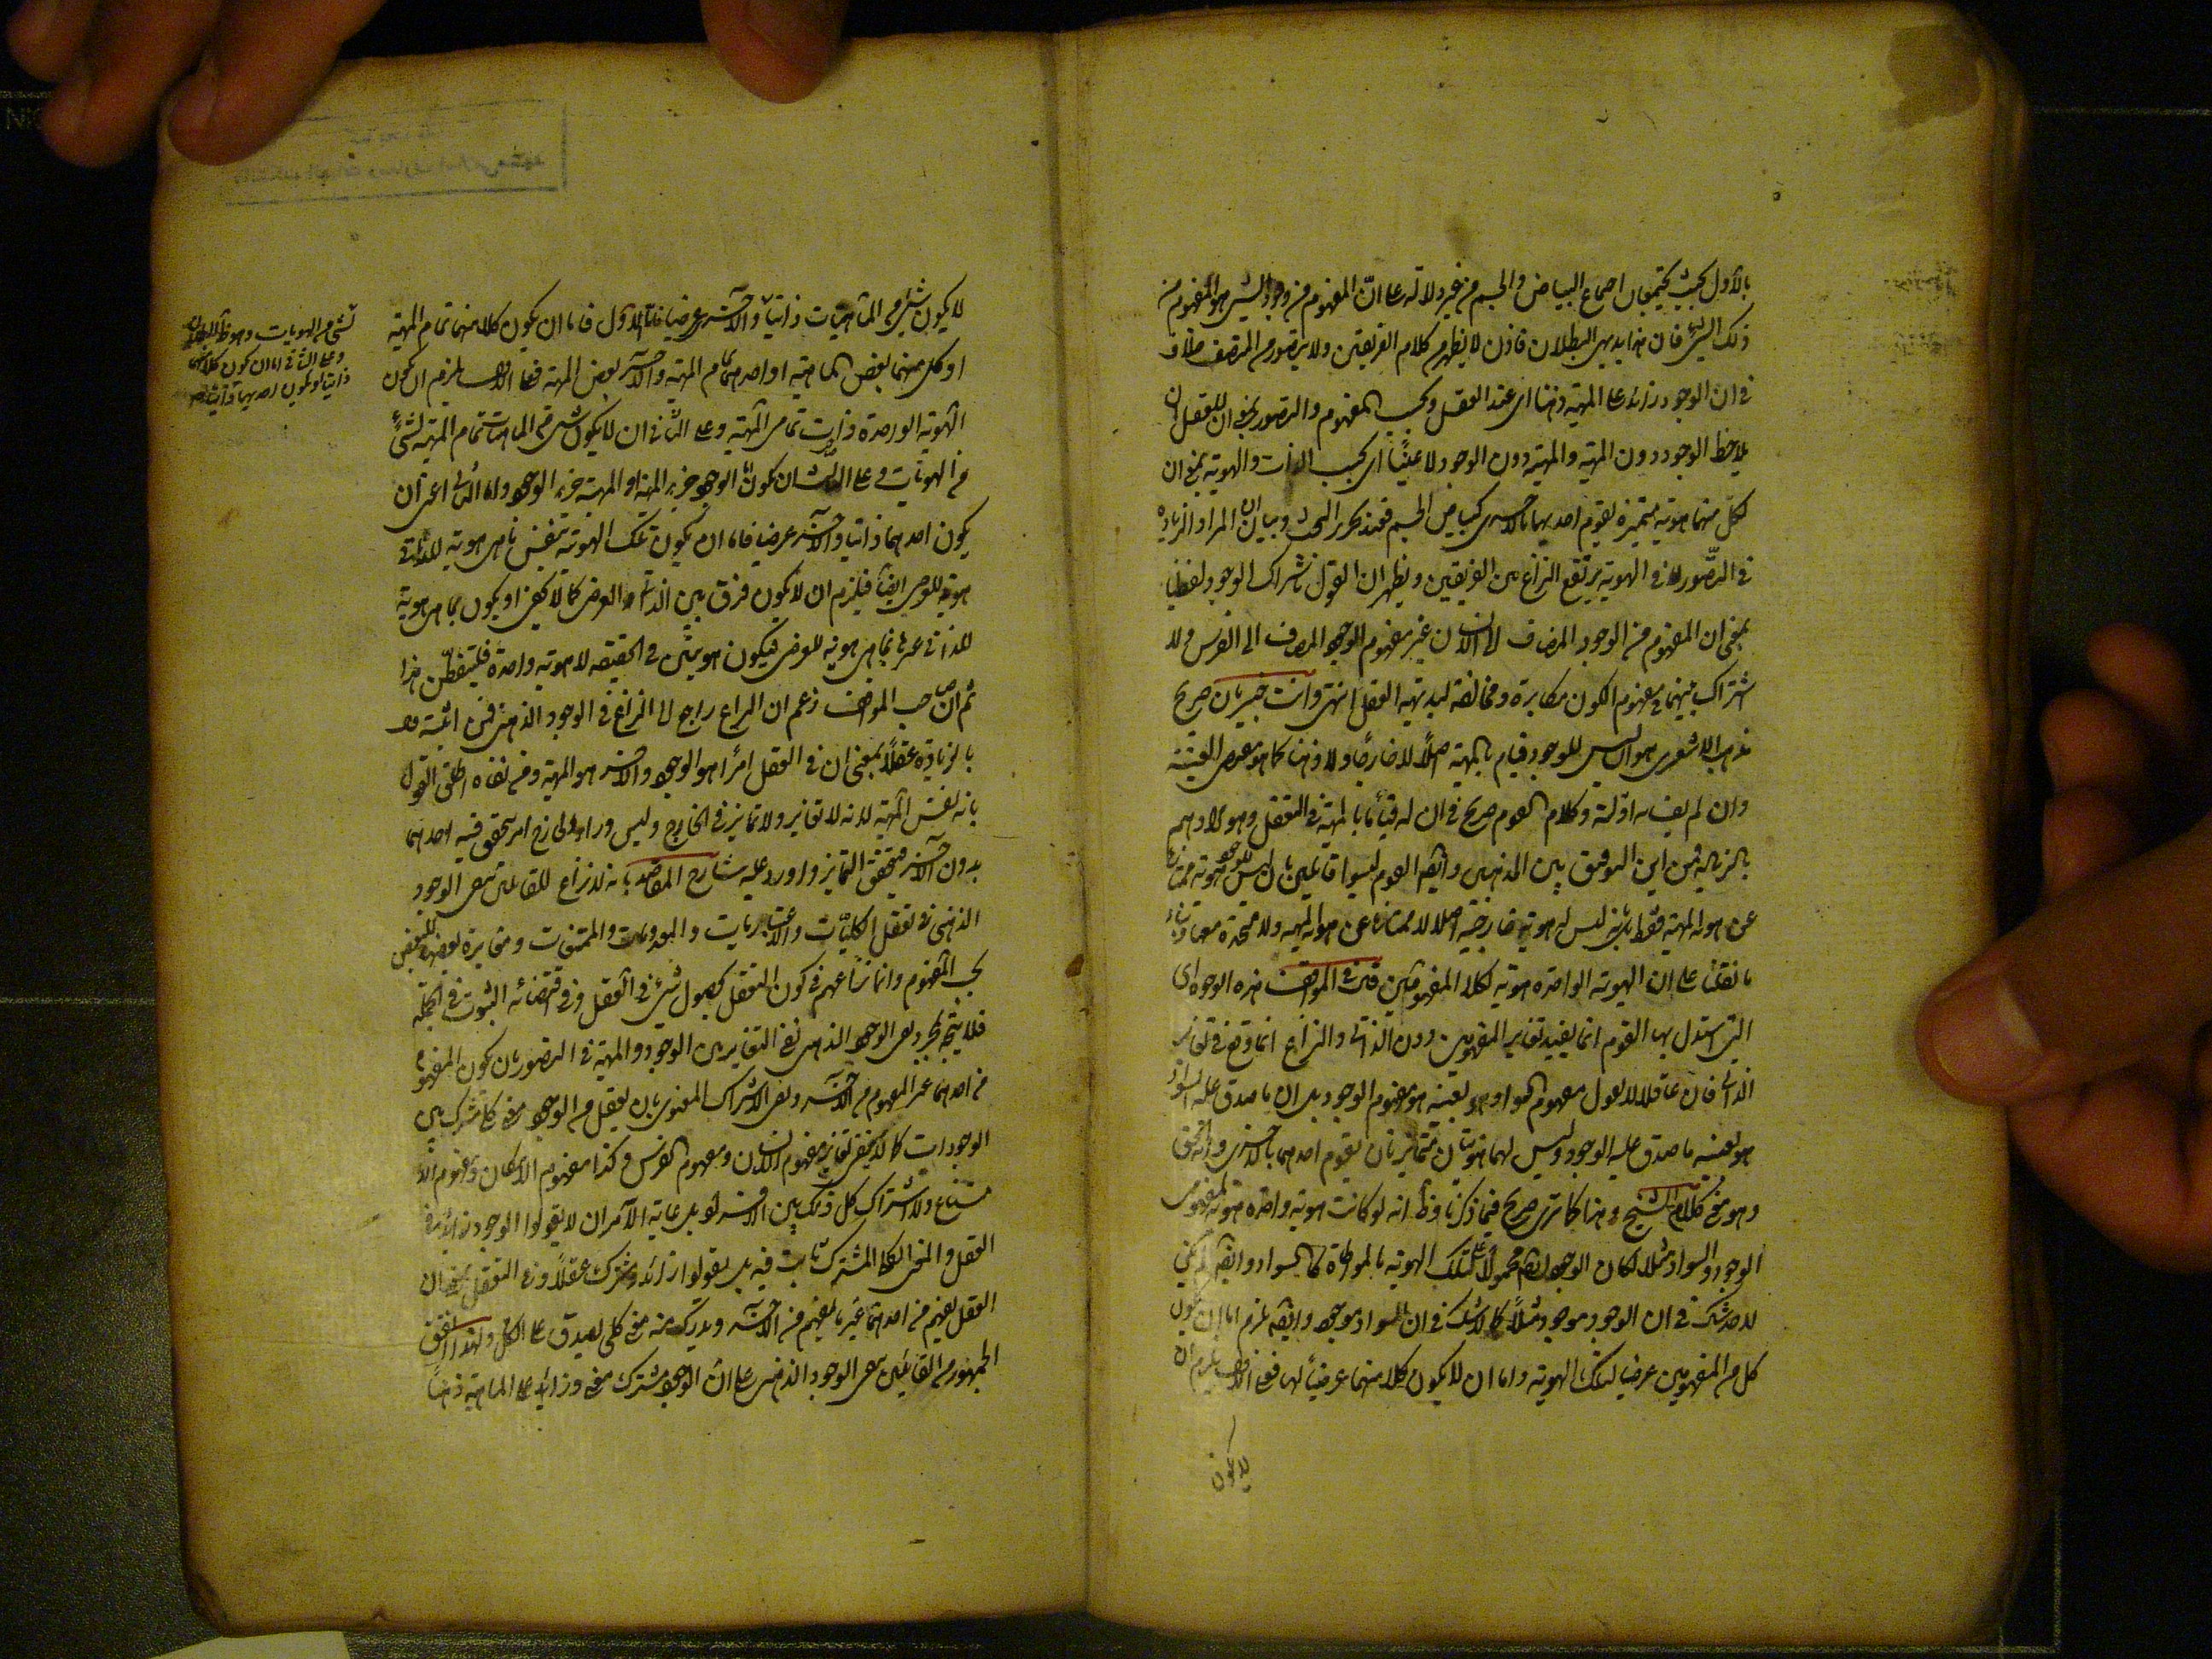 بالأول بحيث يجتمعان اجتماع البياض والجسم من غير دلالة على انّ المفهوم من وجود الشيئ هو المفهوم من
ذلك الشيئ فان هذا بديهي البطلان فاذن لا يظهر من كلام الفريقين ولا يتصور من المنصف خلاف
في ان الوجود زائد على المهية ذهنا اى عند العقل وبحسب المفهوم والتصور بمعنى ان للعقل ان
يلاحظ الوجود دون المهية والمهية دون الوجود لا عينًا اى بحسب الذات والهوية بمعنى ان
لكل منهما هوية متميزة يقوم احديهما بالاخرى كبياض الجسم فعند تحرير البحث وبيان ان المراد الزيادة
في التصور لا في الهوية يرتفع النزاع بين الفريقين ويظهر ان القول باشتراك الوجود لفظيا
بمعنى ان المفهوم من الوجود المضاف الى الانسان غير مفهوم الوجود المضاف الى الفرس ولا
اشتراك بينهما في مفهوم الكون مكابرة ومخالفة لبديهة العقل انتهى وانت خبير بان صريح
مذهب الاشعرى هو ان ليس للوجود قيام بالمهية اصلاً لا خارجًا ولا ذهنا كما هو معنى العينية
وان لم يف به ادلته وكلام القوم صريح في ان له قيامًا بالمهية في التعقل وهو مرادهم
بالزيادة فمن اين التوفيق بين المذهبين وايضا القوم ليسوا قائلين بان ليس للوجود هوية ممتازة
عن هوية المهية فقط بل بانه ليس له هوية خارجية اصلا لا ممتازة عن هوية المهية ولا متحدة معها
ما نقلنا على ان الهوية الواحدة هوية لكلا المفهومين قال في المواقف هذه الوجوه اى
التى استدل بها القوم انما يفيد تغاير المفهومين دون الذاتين والنزاع انما وقع في تغاير
الذاتين فان عاقلا لا يقول مفهوم السواد هو بعينه هو مفهوم الوجود بل ان ما صدق عليه السواد
هو بعينه ما صدق عليه الوجود وليس لهما هويتان متمايزتان يقوم احديهما بالاخرى وانه الحق
وهو معنى كلام الشيخ وهذا كما ترى صريح فيما ذكرنا وظ انه لو كانت هوية واحدة هوية لمفهومى
الوجود والسواد مثلا لكان الوجود ايضا محمولاً على تلك الهوية بالمواطاة كما السواد وايضا
لا شك في ان الوجود موجود مثلاً كما لا شك في ان السواد موجود وايضا يلزم اما ان يكون
كل من المفهومين عرضيا لتلك الهوية واما ان لا يكون كلا منهما عرضيًا لها فعلى الاول يلزم ان
لا يكون
لا يكون شيئ من الماهيات ذاتيا والاخر عرضيا فعلى الاول فاما ان يكون كلا منهما تمام المهية
او كل منهما بعض الماهية او احدهما تمام المهية والاخر بعض المهية فعلى الاول يلزم ان يكون
الهوية الواحدة ذات تمامى المهية وعلى الثانى ان لا يكون شيئ من الماهيات تمام المهية لشيئ
من الهويات وعلى الثالث ان يكون اما الوجود جزء المهية او المهية جزء الوجود واما الثانى اعنى ان
يكون احدهما ذاتيا والاخر عرضيا فاما ان يكون تلك الهوية بنفس ما هى هوية للذاتى
هوية للعرضى ايضا فيلزم ان لا يكون فرق بين الذاتى والعرضى كما لا يخفى او يكون بما هى هوية
للذاتى غيرها بما هى هوية للعرضى فيكون هويتين في الحقيقة لا هوية واحدة فليتفطن هذا
ثم ان صاحب المواقف زعم ان النزاع راجع الى النزاع في الوجود الذهنى فمن اثبته قال
بالزيادة عقلاً بمعنى ان في العقل امرًا هو الوجود والاخر هو المهية ومن نفاه اطلق القول
بانه نفس المهية لانه لا تغاير ولا تمايز في الخارج وليس وراء الخارج امر يتحقق فيه احدهما
بدون الاخر فيتحقق التمايز واورد عليه شارح المقاصد بانه لا نزاع للقائلين بنفى الوجود
الذهنى في تعقل الكليات والاعتباريات والمعدومات والممتنعات ومغايرة بعضها للبعض
بحسب المفهوم وانما نزاعهم في كون التعقل بحصول شيئ في العقل وفي اقتضائه الثبوت في الجملة
فلا يتجه لمجرد نفى الوجود الذهنى نفى التغاير بين الوجود والمهية في التصور بان يكون المفهوم
من احدهما عين المفهوم من الاخر ونفى الاشتراك المعنوى بان يعقل من الوجود معنى كلى مشترك بين
الوجودات كما لا يخفى تغاير مفهوم الانسان ومفهوم الفرس وكذا مفهوم الامكان ومفهوم الا
متناع ولا اشتراك كل من ذلك بين الافراد بل غاية الامر ان لا يقولوا الوجود زائد في
العقل والمعنى الكلى المشترك ثابت فيه بل يقولوا زائد ومشترك عقلاً وفي التعقل بمعنى ان
العقل يفهم من احدهما غير ما يفهم من الاخر ويدرك منه معنى كلى يصدق على الكل ولهذا اتفق
الجمهور من القائلين بنفى الوجود الذهنى على ان الوجود مشترك معنى وزائد على الماهية ذهنًا
لشيئ من الهويات وهو ظاهر البطلان
وعلى الثانى اما ان يكون كلا منهما
ذاتيا او يكون احديهما ذاتيا